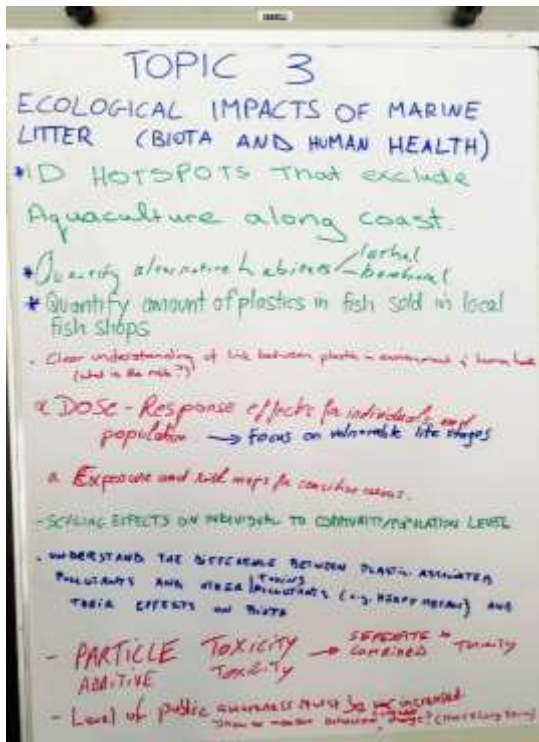 TOPIC 3
ECOLOGICAL IMPACTS OF MARINE
LITTER (BIOTA AND HUMAN HEALTH)
*ID HOTSPOTS That exclude
Aquaculture along coast.
*Quantify alternative habitats/lethal
* Quantify amount of plastics in fish sold in local
fish shops
- Clear understanding of link between plastic in environment & human
(what is the risk?)
DOSE - Response effects for individuals and
population → Focus on vulnerable life stages
Exposure and risk maps for sensitive
- SCALING EFFECTS ON INDIVIDUAL TO COMMUNITY/POPULATION LEVEL
- UNDERSTAND THE DIFFERENCE BETWEEN PLASTIC-ASSOCIATED
POLLUTANTS AND OTHER POLLUTANTS (e.g. HEAVY METALS) AND
THEIR EFFECTS ON BIOTA
- PARTICLE TOXICITY → SEPERATE
ADDITIVE TOXICITY COMBINED TOXICITY
- Level of public awareness must be increased